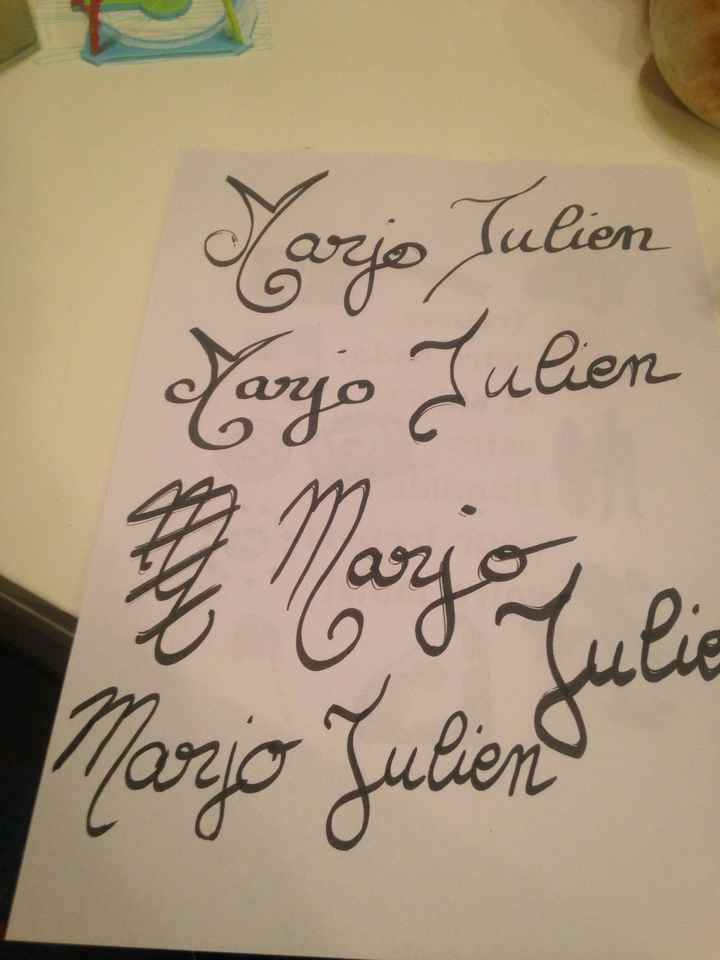 Marjo Julien
Marjo Julien
Marjo
Julie
Marjo Julien